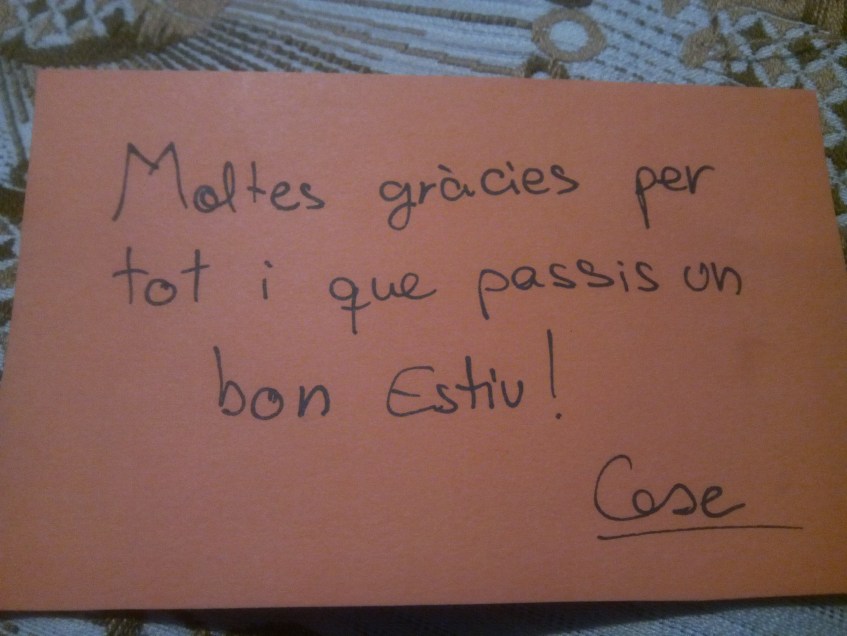 Moltes gràcies per
tot i que passis un
bon Estiu!
Cese